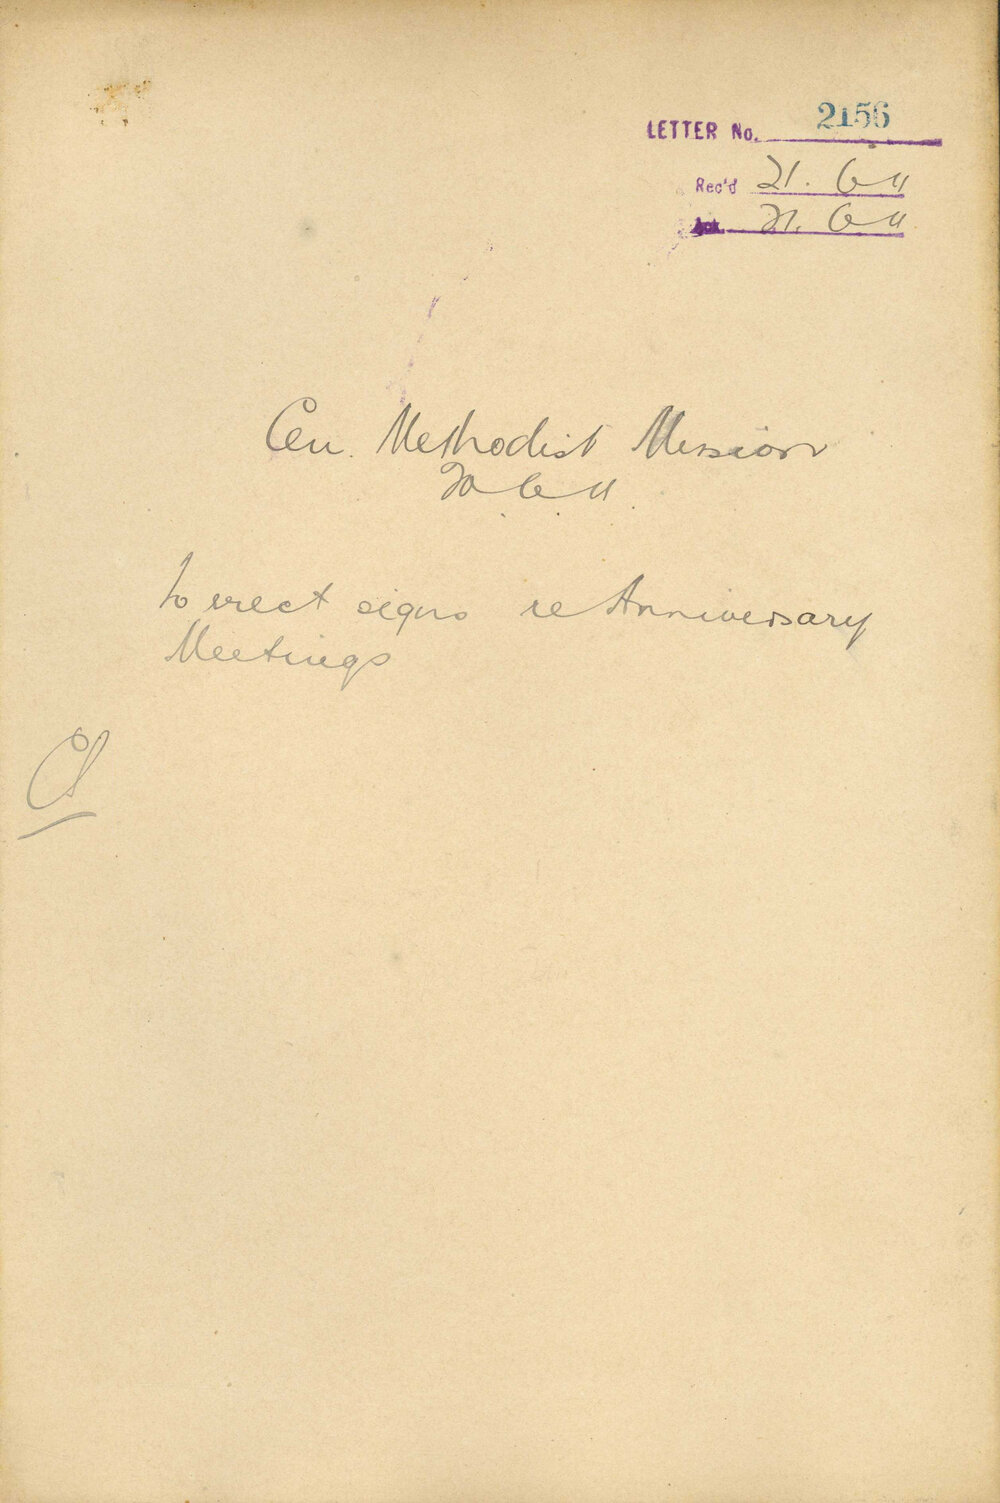 LETTER No. 2156
Rec'd 21. 6 11
Ack. 21. 6 11
Cen. Methodist Mission
20 6 11
to erect signs re Anniversary
Meetings